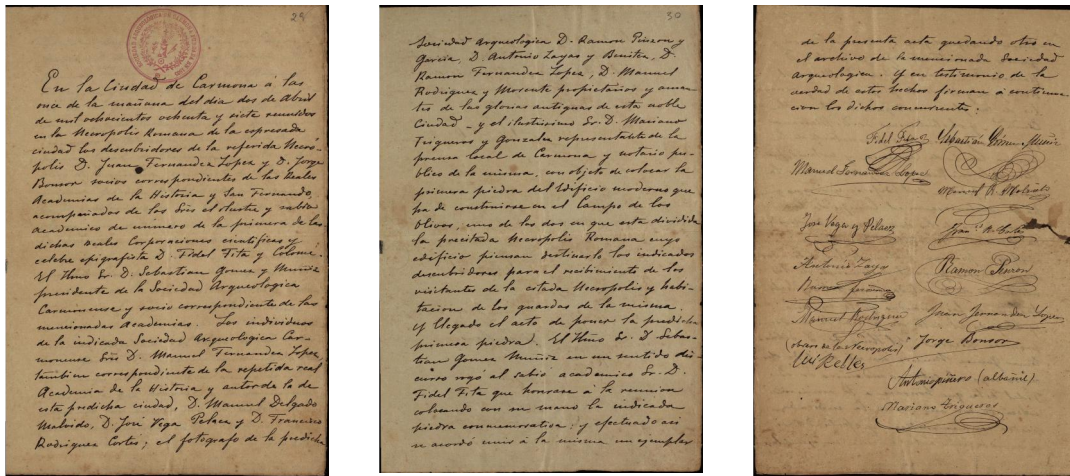 29
En la Ciudad de Carmona á las
once de la mañana del dia dos de Abril
de mil ochocientos ochenta y siete reunidos
en la Necropolis Romana de la expresada
ciudad los descubridores de la referida Necro-
polis D. Juan Fernandez Lopez y D. Jorge
Bonsor socios correspondientes de las Reales
Academias de la Historia y San Fernando,
acompañados de los Sres el ilustre y sabio
Academico de número de la primera de las
dichas Reales Corporaciones cientificas y
celebre epigrafista D. Fidel Fita y Colomé.
El Ilmo Sr. D. Sebastian Gomez y Muñiz
presidente de la Sociedad Arqueologica
Carmonense y socio correspondiente de las
mencionadas Academias. Los individuos
de la indicada Sociedad Arqueologica Car-
monense Sres D. Manuel Fernandez Lopez,
tambien correspondiente de la repetida real
Academia de la Historia y autor de la de
esta predicha ciudad, D. Manuel Delgado
D. José Vega Pelaez y D. Francisco
Rodriguez Cortes; el fotografo de la predicha
30
Sociedad Arqueologica D. Ramon Pinzon y
Garcia, D. Antonio Zayas y Benitez, D.
Ramon Fernandez Lopez, D. Manuel
Rodriguez y Morente propietarios y aman-
tes de las glorias antiguas de esta noble
Ciudad - y el ilustrisimo Sr. D. Mariano
Trigueros y Gonzalez representante de la
prensa local de Carmona y notario pu-
blico de la misma, con objeto de colocar la
primera piedra del Edificio moderno que
ha de construirse en el Campo de los
Olivos, uno de los dos en que esta dividida
la precitada Necropolis Romana cuyo
edificio piensan destinarlo los indicados
descubridores para el recibimiento de los
visitantes de la citada Necropolis y habi-
tacion de los guardas de la misma
Y llegado el acto de poner la predicha
primera piedra. El Ilmo Sr. D. Sebas-
tian Gomez Muñiz en un sentido dis-
curso rogó al sabio academico Sr. D.
Fidel Fita que honrase á la reunion
colocando con su mano la indicada
piedra conmemorativa: y efectuado asi
se acordó unir á la misma un ejemplar
de la presente acta quedando otro en
el archivo de la mencionada Sociedad
Arqueologica. Y en testimonio de la
verdad de estos hechos forman á continua
cion los dichos concurrentes.
Fidel Fita Sebastián Gómez Muñiz
Manuel Fernandez Lopez
José Vega y Pelaez
Antonio Zayas
Ramon Pinzon
Manuel Rodriguez Juan Fernandez Lopez
(obrero de la Necropolis) Jorge Bonsor
Luis Relles
(albañil)
Mariano Trigueros